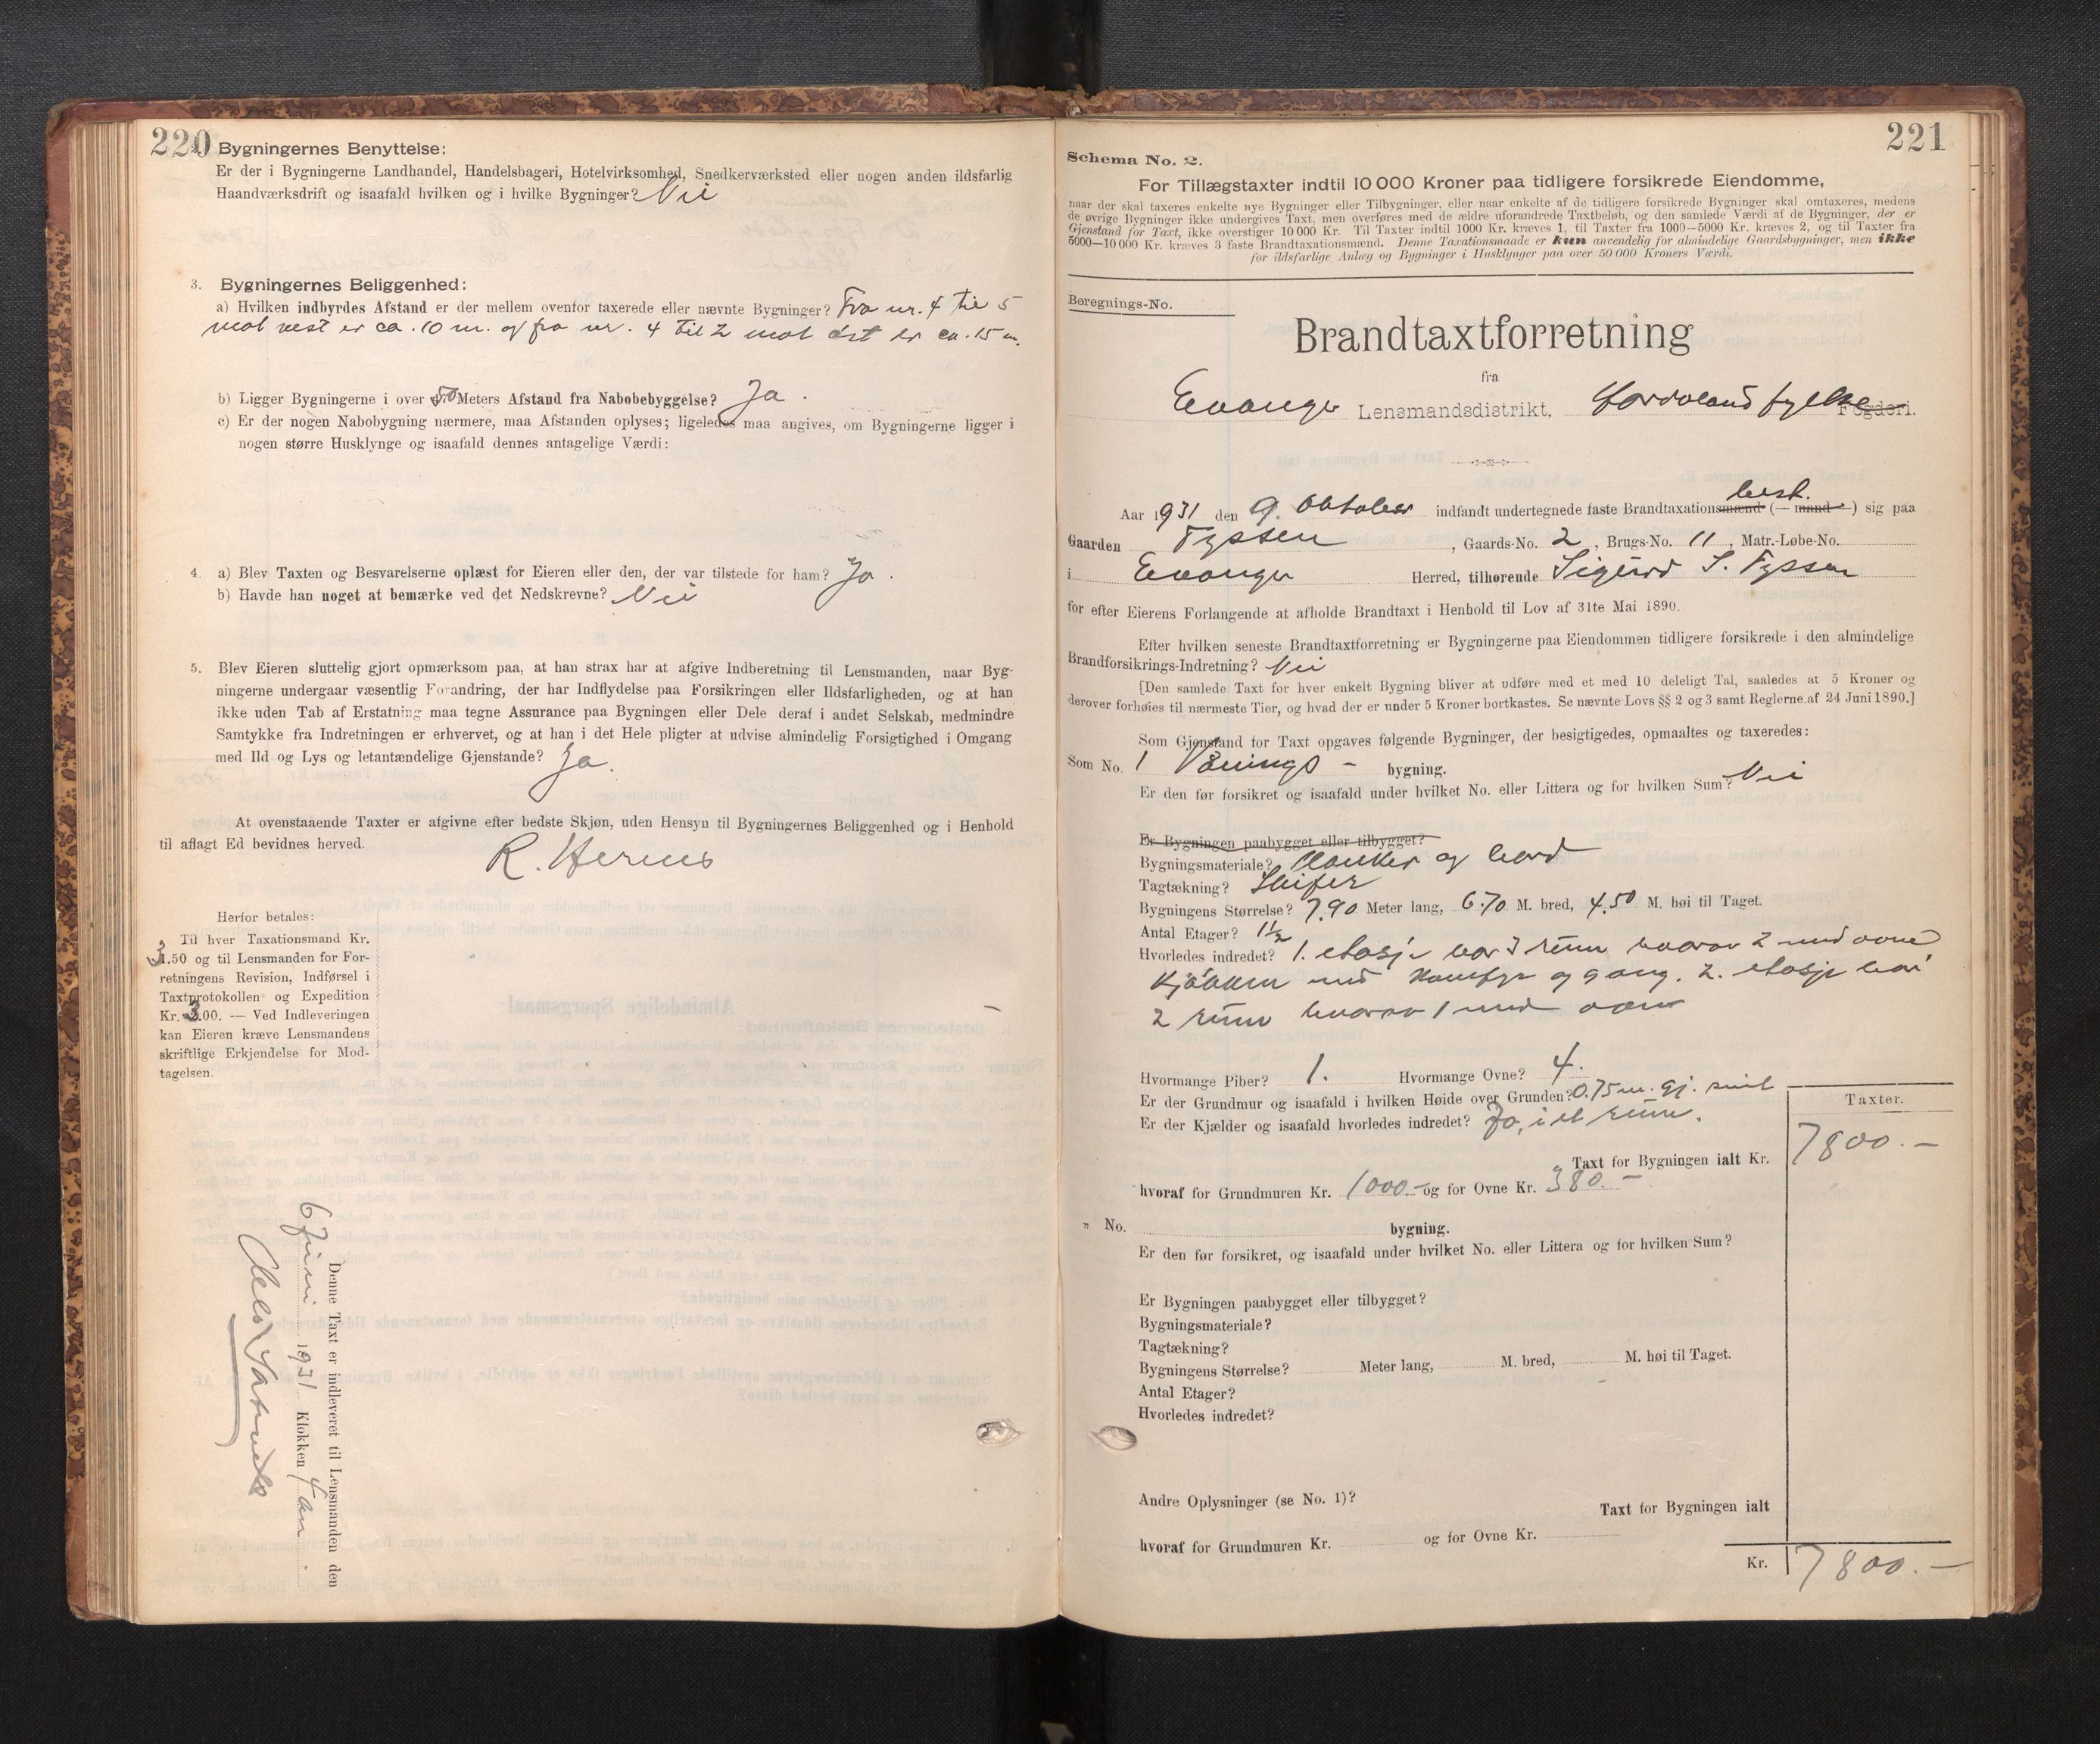 220
Bygningernes Benyttelse:
Er der i Bygningerne Landhandel, Handelsbageri, Hotelvirksomhed, Snedkerværksted eller nogen anden ildsfarlig
Haandværksdrift og isaafald hvilken og i hvilke Bygninger? Nei
3. Bygningernes Beliggenhed:
a) Hvilken indbyrdes Afstand er der mellem ovenfor taxerede eller nævnte Bygninger? Fra nr. 4 til 5
mot vest er ca. 10 m. og fra nr. 4 til 2 mot øst er ca. 15 m.
b) Ligger Bygningerne i over 50 Meters Afstand fra Nabobebyggelse? Ja.
c) Er der nogen Nabobygning nærmere, maa Afstanden oplyses; ligeledes maa angives, om Bygningerne ligger i
nogen større Husklynge og isaafald dennes antagelige Værdi:
4. a) Blev Taxten og Besvarelserne oplæst for Eieren eller den, der var tilstede for ham? Ja.
b) Havde han noget at bemærke ved det Nedskrevne? Nei
5. Blev Eieren sluttelig gjort opmærksom paa, at han strax har at afgive Indberetning til Lensmanden, naar Byg-
ningerne undergaar væsentlig Forandring, der har Indflydelse paa Forsikringen eller Ildsfarligheden, og at han
ikke uden Tab af Erstatning maa tegne Assurance paa Bygningen eller Dele deraf i andet Selskab, medmindre
Samtykke fra Indretningen er erhvervet, og at han i det Hele pligter at udvise almindelig Forsigtighed i Omgang
med Ild og Lys og letantændelige Gjenstande? Ja.
At ovenstaaende Taxter er afgivne efter bedste Skjøn, uden Hensyn til Bygningernes Beliggenhed og i Henhold
til aflagt Ed bevidnes herved.
R. Hernes
Herfor betales:
Til hver Taxationsmand Kr.
3.50 og til Lensmanden for For-
retningens Revision, Indførsel i
Taxtprotokollen og Expedition
Kr. 3.00. — Ved Indleveringen
kan Eieren kræve Lensmandens
skriftlige Erkjendelse for Mod-
tagelsen.
Denne Taxt er indleveret til Lensmanden den
6 Juni 1931 Klokken 4
221
Schema No. 2.
For Tillægstaxter indtil 10 000 Kroner paa tidligere forsikrede Eiendomme,
naar der skal taxeres enkelte nye Bygninger eller Tilbygninger, eller naar enkelte af de tidligere forsikrede Bygninger skal omtaxeres, medens
de øvrige Bygninger ikke undergives Taxt, men overføres med de ældre uforandrede Taxtbeløb, og den samlede Værdi af de Bygninger, der er
Gjenstand for Taxt, ikke overstiger 10 000 Kr. Til Taxter indtil 1000 Kr. kræves 1, til Taxter fra 1000—5000 Kr. kræves 2, og til Taxter fra
5000—10 000 Kr. kræves 3 faste Brandtaxationsmænd. Denne Taxationsmaade er kun anvendelig for almindelige Gaardsbygninger, men ikke
for ildsfarlige Anlæg og Bygninger i Husklynger paa over 50 000 Kroners Værdi.
Beregnings-No.
Brandtaxtforretning
fra
Evanger Lensmandsdistrikt, Hordaland fylke Fogderi.
best.
Aar 1931 den 9. Oktober indfandt undertegnede faste Brandtaxationsmænd (— mand —) sig paa
Gaarden Fyssen, Gaards-No. 2, Brugs-No. 11, Matr.-Løbe-No.
i Evanger Herred, tilhørende Sigurd S. Fyssen
for efter Eierens Forlangende at afholde Brandtaxt i Henhold til Lov af 31te Mai 1890.
Efter hvilken seneste Brandtaxtforretning er Bygningerne paa Eiendommen tidligere forsikrede i den almindelige
Brandforsikrings-Indretning? Nei
[Den samlede Taxt for hver enkelt Bygning bliver at udføre med et med 10 deleligt Tal, saaledes at 5 Kroner og
derover forhøies til nærmeste Tier, og hvad der er under 5 Kroner bortkastes. Se nævnte Lovs §§ 2 og 3 samt Reglerne af 24 Juni 1890.]
Som Gjenstand for Taxt opgaves følgende Bygninger, der besigtigedes, opmaaltes og taxeredes:
Som No. 1 Vånings- bygning.
Er den før forsikret og isaafald under hvilket No. eller Littera og for hvilken Sum? Nei
Er Bygningen paabygget eller tilbygget?
Bygningsmateriale? Planker og bord
Tagtækning? Skifer
Bygningens Størrelse? 7.90 Meter lang, 6.70 M. bred, 4.50 M. høi til Taget.
Antal Etager? 1½
Hvorledes indredet? 1. etasje har 3 rum hvorav 2 med ovne
kjøkken med komfyr og gang. 2. etasje har
2 rum hvorav 1 med ovn
Hvormange Piber? 1. Hvormange Ovne? 4.
Er der Grundmur og isaafald i hvilken Høide over Grunden? 0.75 m. gj. snit
Er der Kjælder og isaafald hvorledes indredet? Ja, i et rum.
Taxter.
Taxt for Bygningen ialt Kr. 7800.—
hvoraf for Grundmuren Kr. 1000.— og for Ovne Kr. 380.—
" No. bygning.
Er den før forsikret, og isaafald under hvilket No. eller Littera og for hvilken Sum?
Er Bygningen paabygget eller tilbygget?
Bygningsmateriale?
Tagtækning?
Bygningens Størrelse? Meter lang, M. bred, M. høi til Taget.
Antal Etager?
Hvorledes indredet?
Andre Oplysninger (se No. 1)?
Taxt for Bygningen ialt
hvoraf for Grundmuren Kr. og for Ovne Kr.
Kr. 7800.—